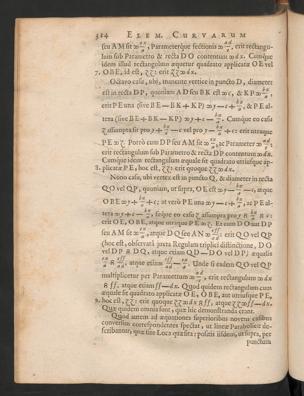 314 ELEM. CURVARUM
seu AM sit ∞ cx/a, Parameterque sectionis ∞ ad/x, erit rectangu-
lum sub Parametro & recta DO contentum ∞ dx. Cumque
idem illud rectangulum æquetur quadrato applicatæ OE vel
7. OBE, id est, zz: erit zz ∞ dx.
Octavo casu, ubi, manente vertice in puncto D, diameter
est in recta DP, quoniam AD seu BK est ∞ c, & KP ∞ bx/a,
erit PE una (sive BE — BK + KP) ∞ y — c + bx/a, & PE al-
tera (sive BE + BK — KP) ∞ y + c — bx/a. Cumque eo casu
z assumpta sit pro y + bx/a — c vel pro y — bx/a + c: erit utraque
PE ∞ z. Porrò cum DP seu AM sit ∞, ac Parameter ∞,
erit rectangulum sub Parametro & recta DP contentum ∞ dx.
Cumque idem rectangulum æquale sit quadrato utriusque ap-
8. plicatæ PE, hoc est, zz: erit quoque zz ∞ dx.
Nono casu, ubi vertex est in puncto Q, & diameter in recta
QO vel QP, quoniam, ut supra, OE est ∞ y — bx/a — c, atque
OBE ∞ y + bx/a + c; at verò PE una ∞ y — c + bx/a, ac PE al-
tera ∞ y + c — bx/a, sitque eo casu z assumpta pro
erit OE, OBE, atque utraque PE ∞ z. Existente DO aut DP
seu AM sit ∞, atque DQ seu AN ∞: erit QO vel QP
(hoc est, observatâ juxta Regulam triplici distinctione, DO
vel DP & DQ, atque etiam QD — DO vel DP) æqualis
atque etiam. Unde si eadem QO vel QP
multiplicetur per Parametrum ∞ ad/x, erit rectangulum ∞ dx
ff, atque etiam ff — dx. Quod quidem rectangulum cum
æquale sit quadrato applicatæ OE, OBE, aut utriusque PE,
9. hoc est, zz: erit quoque zz ∞ dx ff, atque zz ∞ ff — dx.
Quæ quidem omnia sunt, quæ hîc demonstranda erant.
Quod autem ad æquationes superioribus novem casibus
conversim correspondentes spectat, ut lineæ Parabolicæ de-
scribantur, quæ sint Loca quæsita: positis iisdem, ut supra, per
punctum